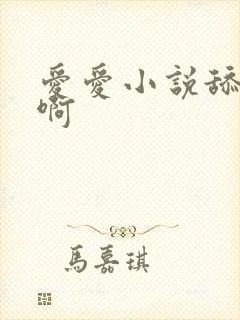 愛愛小說舔
啊
馬嘉琪